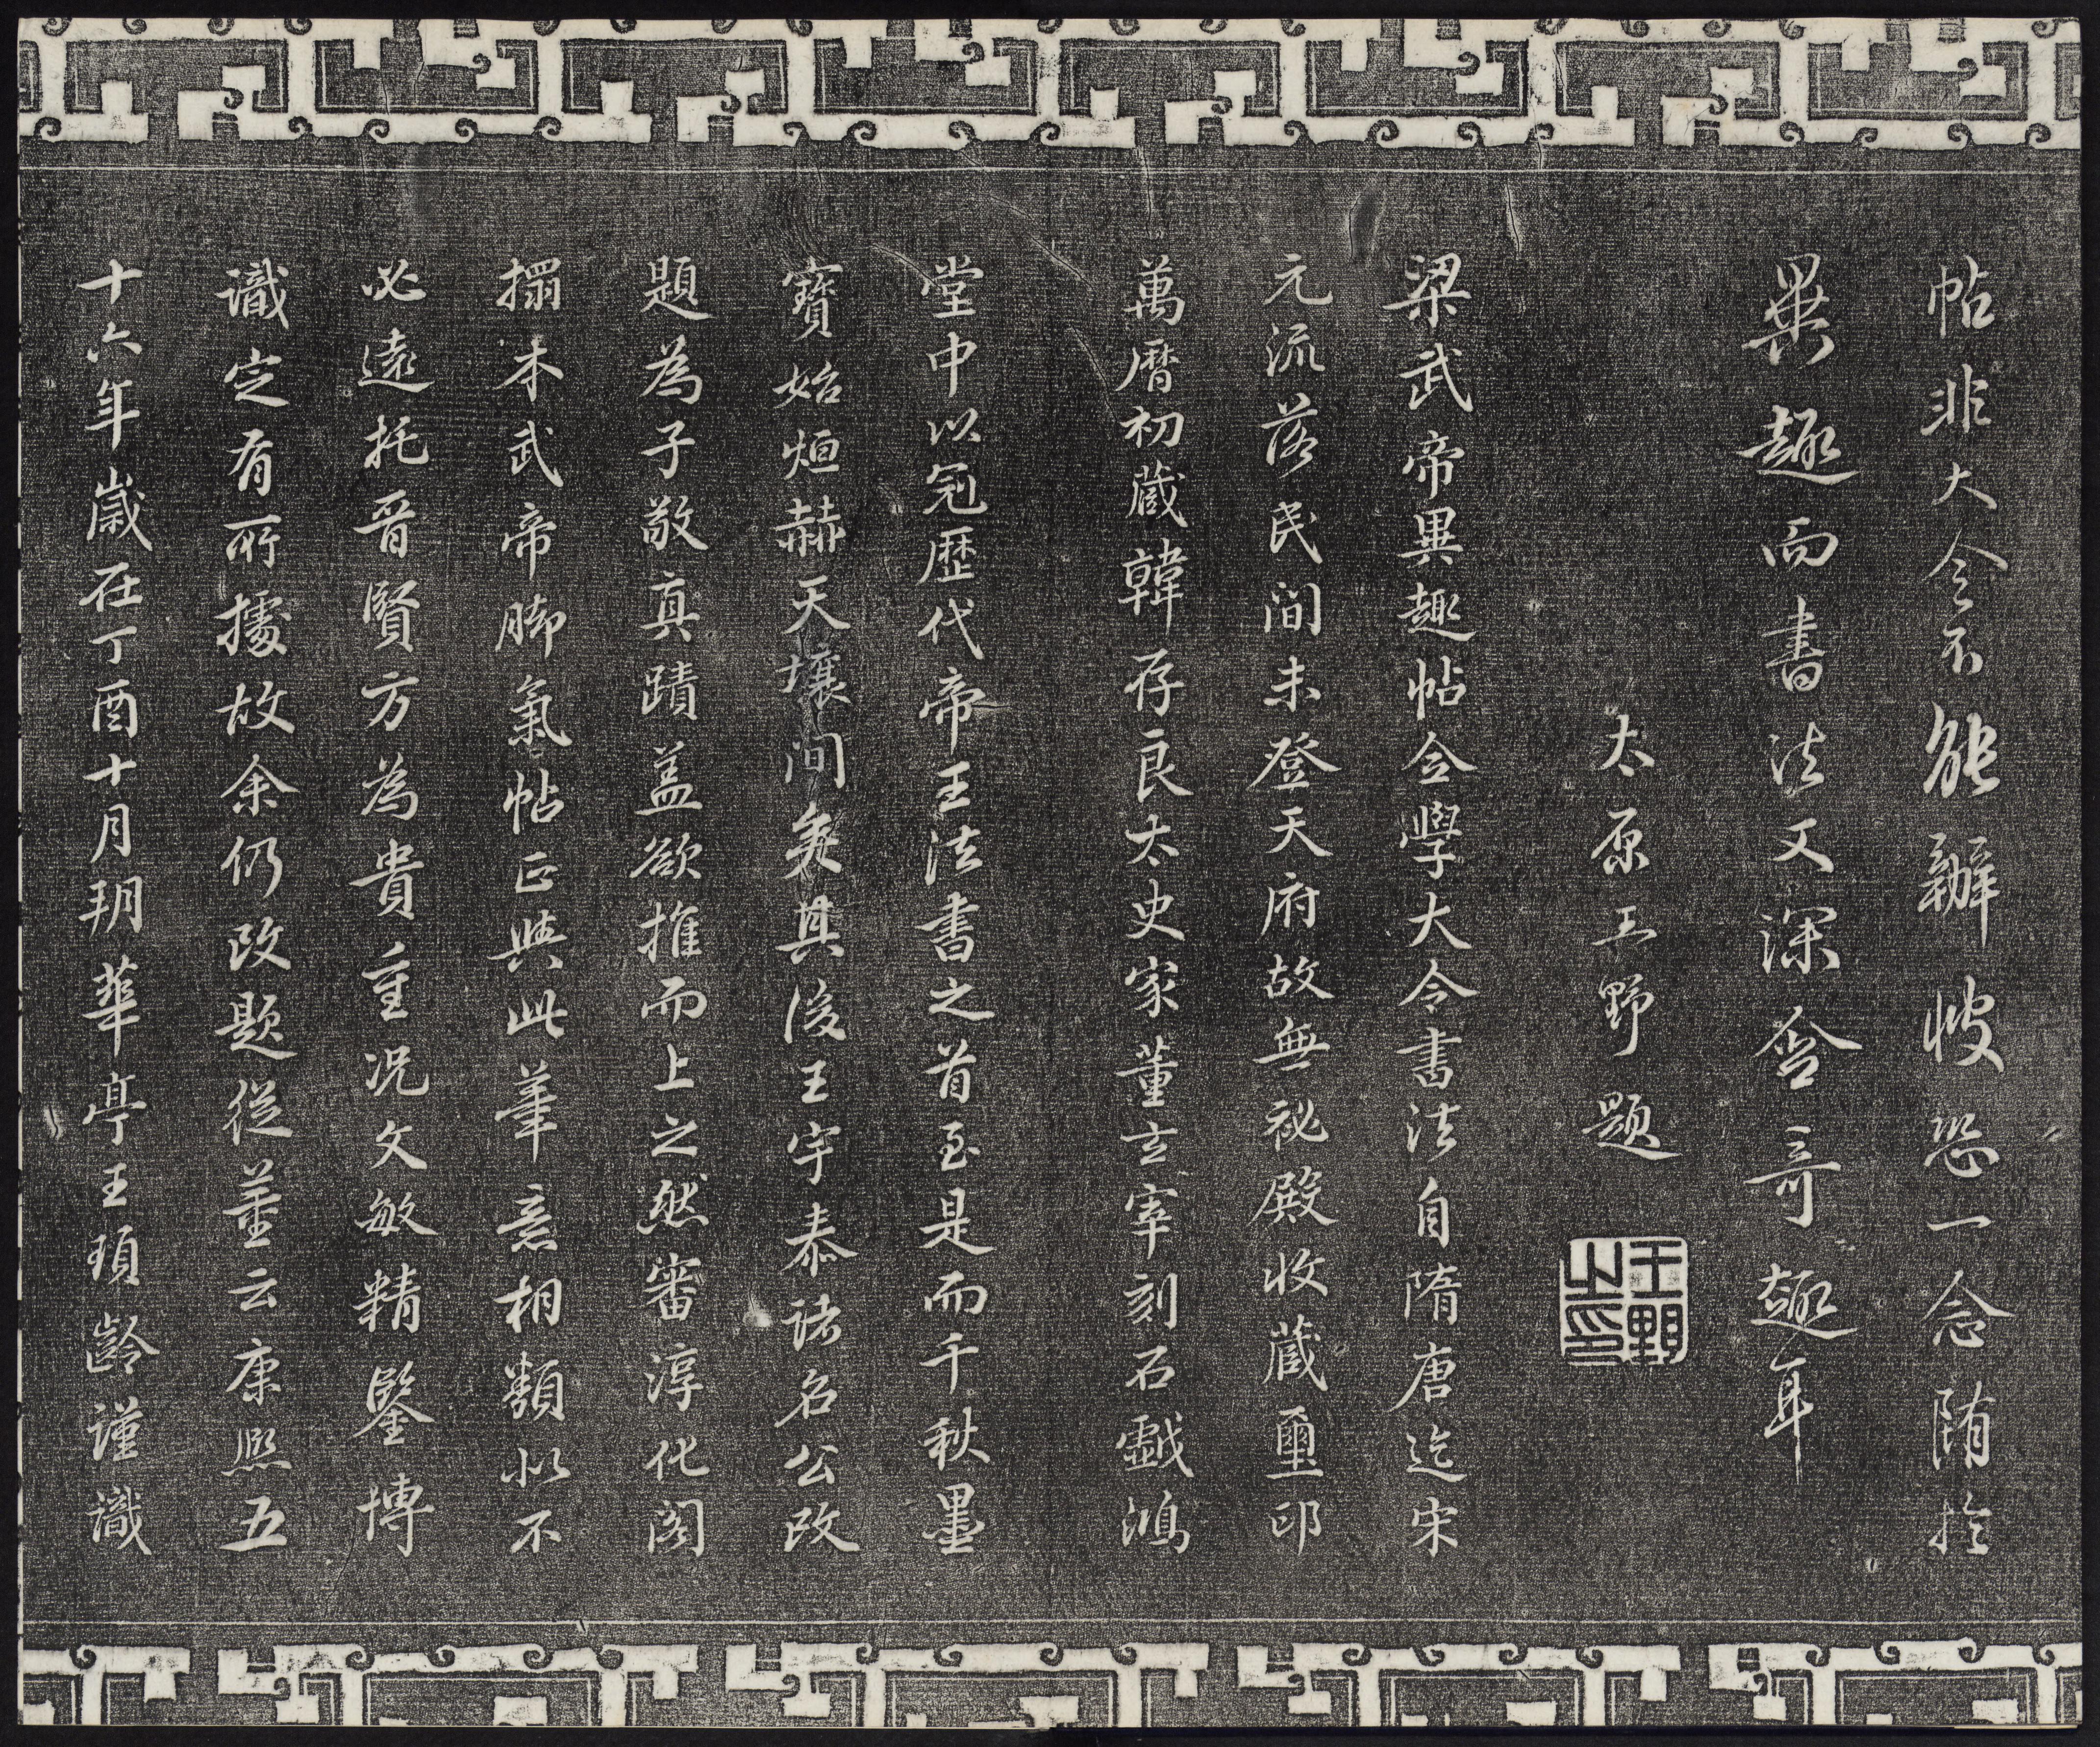 帖非大令不能辦彼恐一念隋於
異趣而書法文深含奇趣耳
太原王野題
王野之印
梁武帝異趣帖全學大令書法自隋唐迄宋
元流落民間未登天府故無祕殿收蔵璽印
萬曆初蔵韓存良太史家董玄宰刻石戲鴻
堂中以冠歷代帝王法書之首至是而千秋墨
寶始烜赫天壤間矣其後王宇泰諸名公改
題為子敬真蹟盖欲推而上之然審淳化閣
搨本武帝脚氣帖正與此筆意相類似不
必遠托晉賢方為貴重况文敏精鑒博
識定有所據故余仍改題從董云康熙五
十六年歲在丁酉十月朔華亭王頊齡謹識